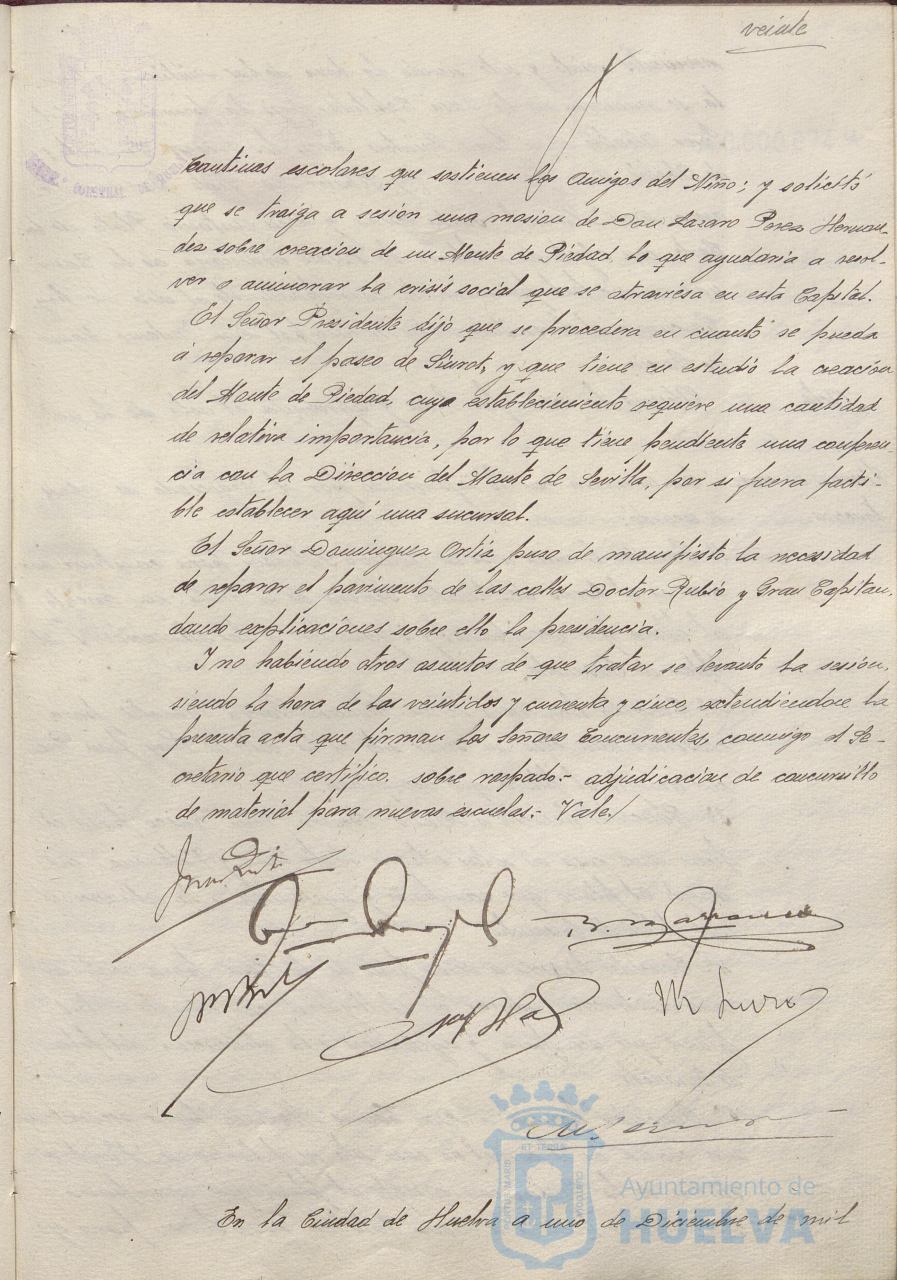 veinte
Cantinas escolares que sostienen los Amigos del Niño; y solicitó
que se traiga a sesión una mosion de Don Lazaro Perez Hernan-
dez sobre creacion de un Monte de Piedad, lo que ayudaria a resol-
ver o aminorar la crisis social que se atraviesa en esta Capital.
El Señor Presidente dijo que se procedera en cuanto se pueda
á reparar el paseo de Siurot, y que tiene en estudio la creación
del Monte de Piedad, cuyo establecimiento requiere una cantidad
de relativa importancia, por lo que tiene pendiente una conferen-
cia con la Direccion del Monte de Sevilla, por si fuera facti-
ble establecer aquí una sucursal.
El Señor Dominguez Ortiz puso de manifiesto la necesidad
de reparar el pavimento de las calles Doctor Rubio y Gran Capitan,
dando explicaciones sobre ello la presidencia.
Y no habiendo otros asuntos de que tratar se levantó la sesion,
siendo la hora de las veintidos y cuarenta y cinco, extendiendose la
presente acta que firman los Señores Concurrentes, conmigo el Se-
cretario que certifico. sobre raspado.- adjudicacion de concursillo
de material para nuevas escuelas.- Vale./
Ayuntamiento de
HUELVA
En la Ciudad de Huelva a uno de Diciembre de mil